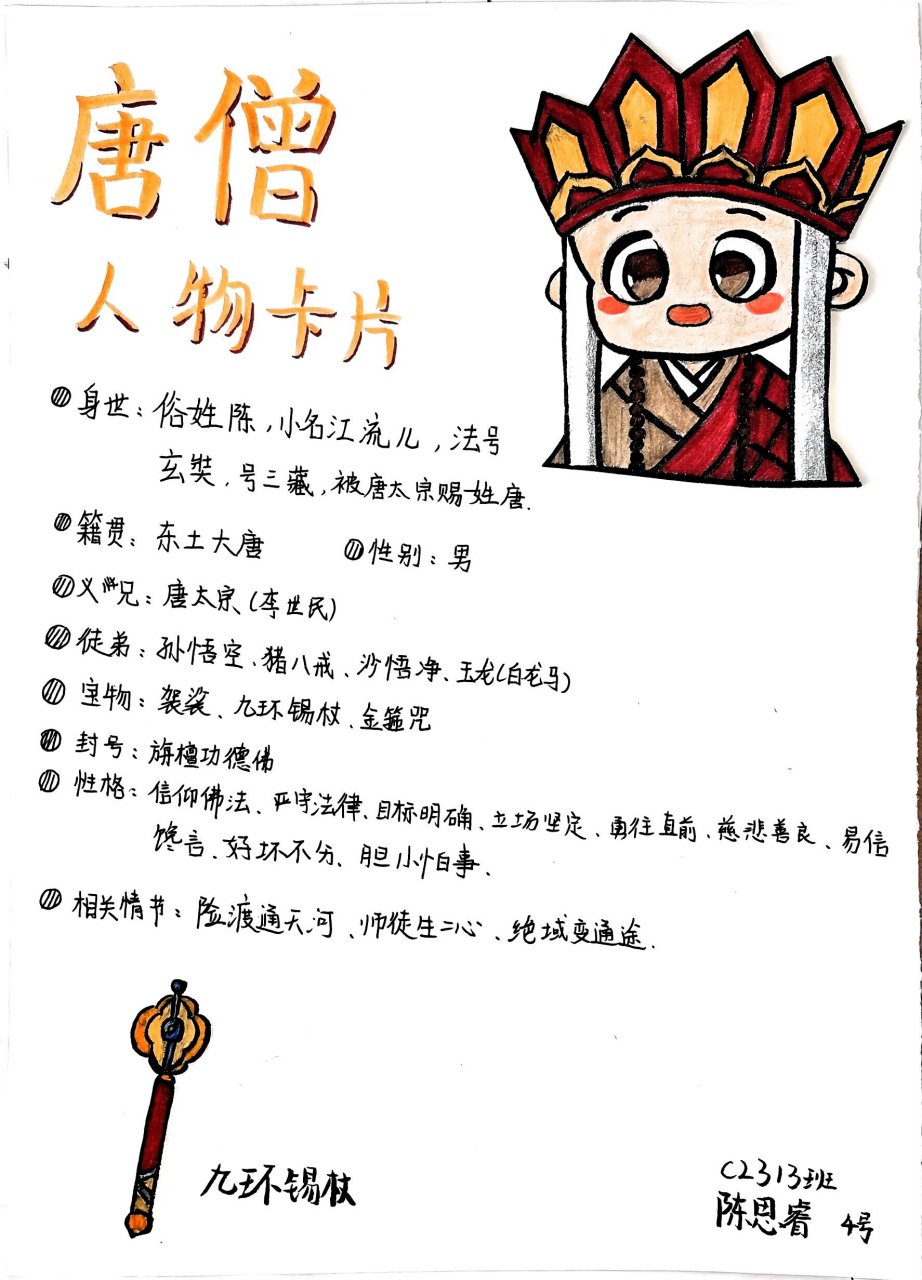 唐僧
人物卡片
身世：俗姓陈，小名江流儿，法号
玄奘，号三藏，被唐太宗赐姓唐.
籍贯：东土大唐 性别：男
义兄：唐太宗(李世民)
徒弟：孙悟空、猪八戒、沙悟净、玉龙(白龙马)
宝物：袈裟、九环锡杖、金箍咒
封号：旃檀功德佛
性格：信仰佛法、严守法律、目标明确、立场坚定、勇往直前、慈悲善良、易信
馋言、好坏不分、胆小怕事.
相关情节：险渡通天河、师徒生二心、绝域变通途.
九环锡杖
C2313班
陈思睿 4号